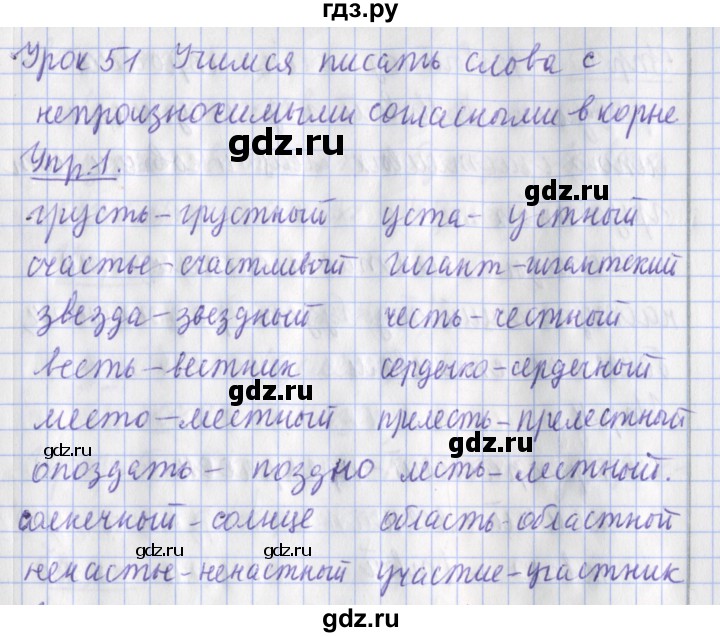 гдз.ру
Урок 51 Учимся писать слова с
непроизносимыми согласными в корне
gdz.ru
Упр.1.
gdz.ru
грусть-грустный уста-устный
счастье-счастливый гигант-гигантский
звезда-звездный честь-честный
весть-вестник сердечко-сердечный
gdz.ru
место-местный прелесть-прелестный
gdz.ru gdz.ru
опоздать - поздно лесть-лестный.
солнечный-солнце область-областной
gdz.ru gdz.ru
ненастье-ненастный участие-участник
gdz.ru